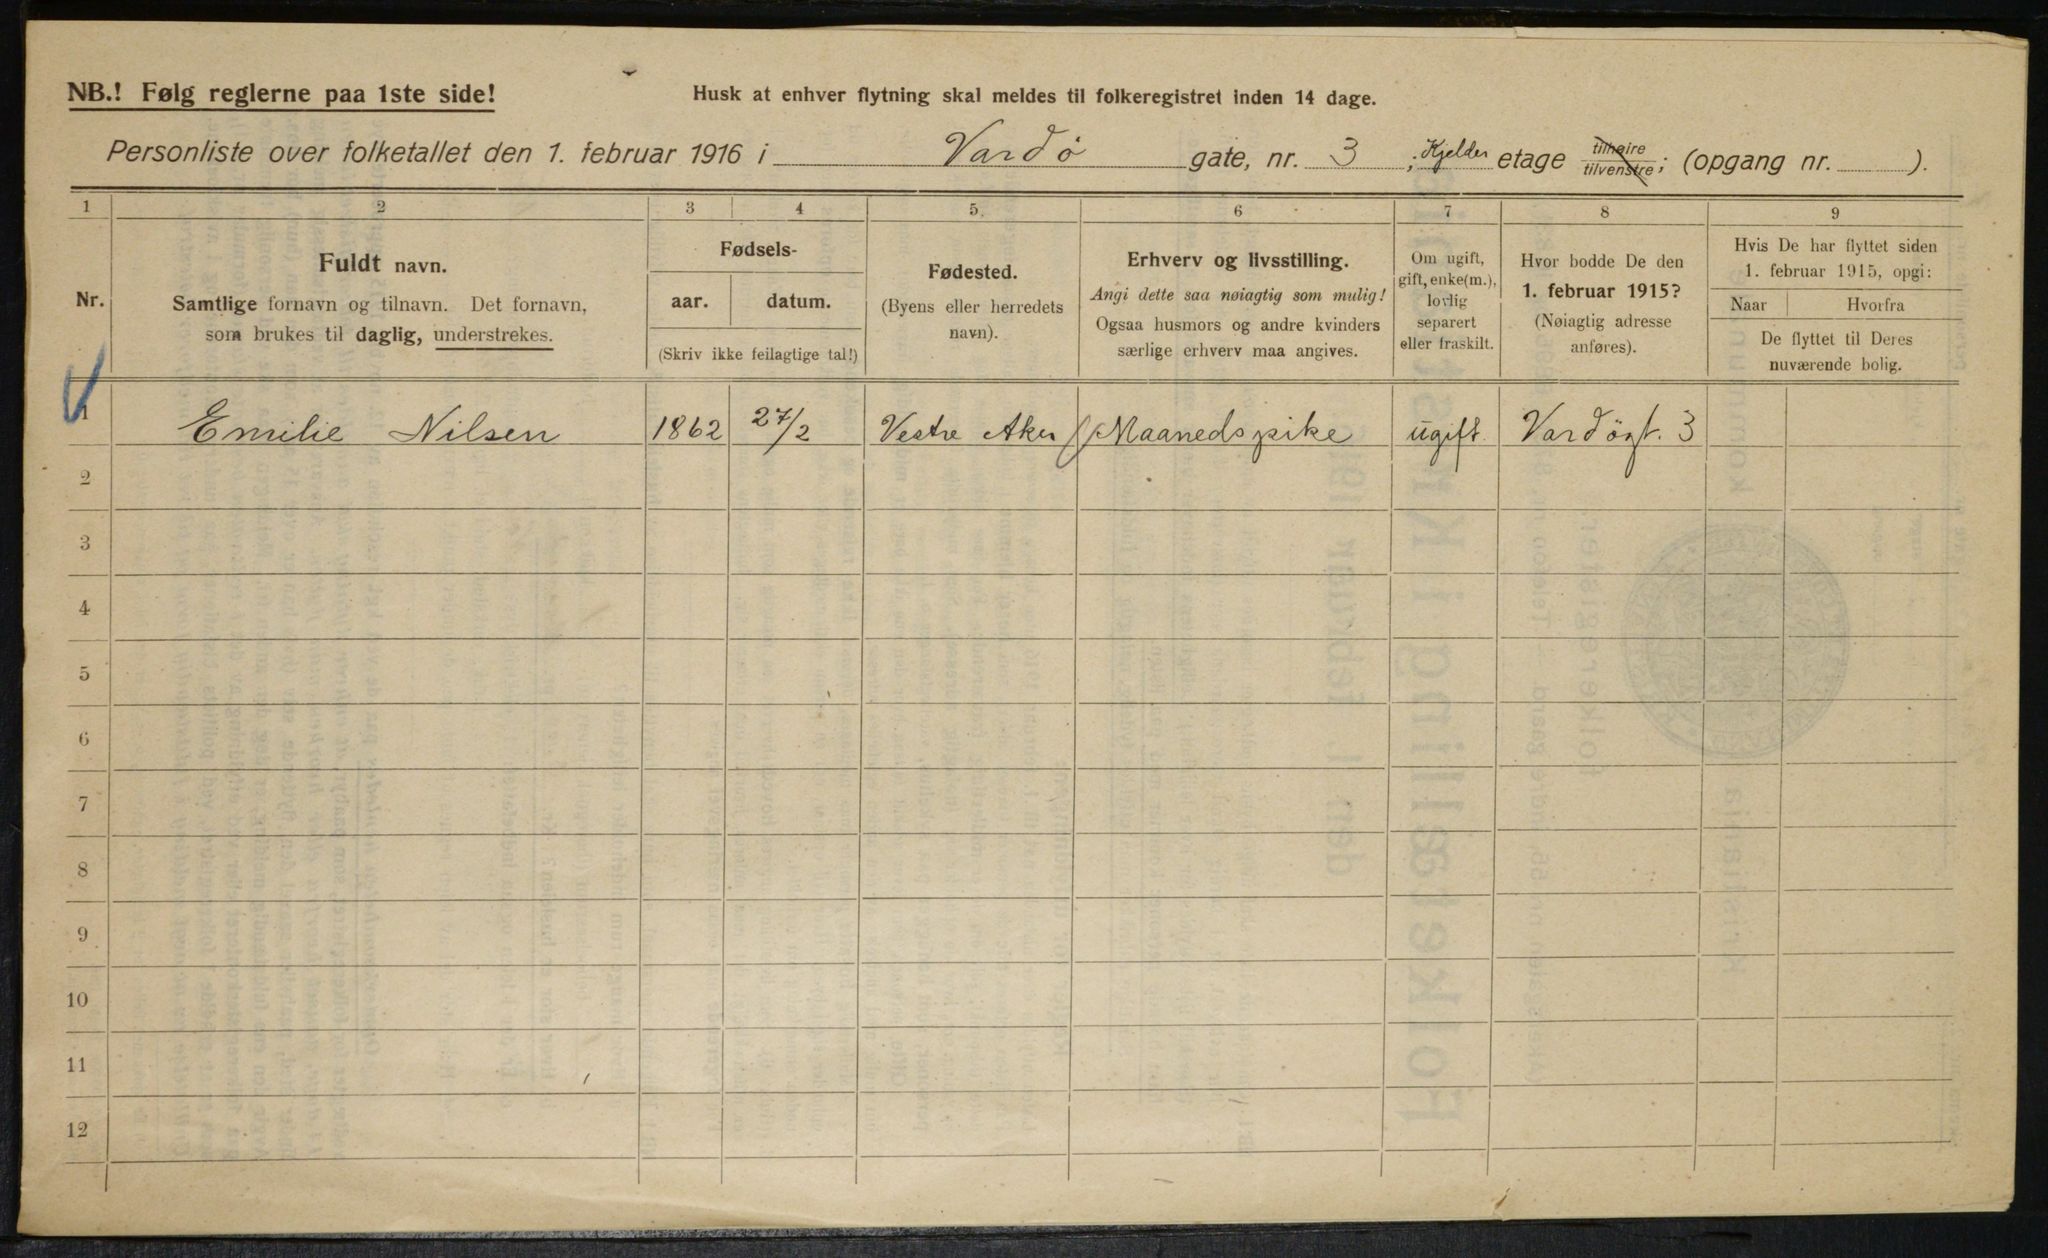 NB.! Følg reglerne paa 1ste side!
Husk at enhver flytning skal meldes til folkeregistret inden 14 dage.
Personliste over folketallet den 1. februar 1916 i Vardø gate, nr. 3 ; Kjelder etage tilhøire/tilvenstre; (opgang nr. ).
1 2 3 4 5. 6 7 8 9
Nr.
Fuldt navn.
Samtlige fornavn og tilnavn. Det fornavn,
som brukes til daglig, understrekes.
Fødsels-
aar. datum.
(Skriv ikke feilagtige tal!)
Fødested.
(Byens eller herredets
navn).
Erhverv og livsstilling.
Angi dette saa nøiagtig som mulig!
Ogsaa husmors og andre kvinders
særlige erhverv maa angives.
Om ugift,
gift, enke(m.),
lovlig
separert
eller fraskilt.
Hvor bodde De den
1. februar 1915?
(Nøiagtig adresse
anføres).
Hvis De har flyttet siden
1. februar 1915, opgi:
Naar Hvorfra
De flyttet til Deres
nuværende bolig.
1 Emilie Nilsen 1862 27/2 Vestre Aker Maanedspike ugift Vardøgt. 3
2
3
4
5
6
7
8
9
10
11
12